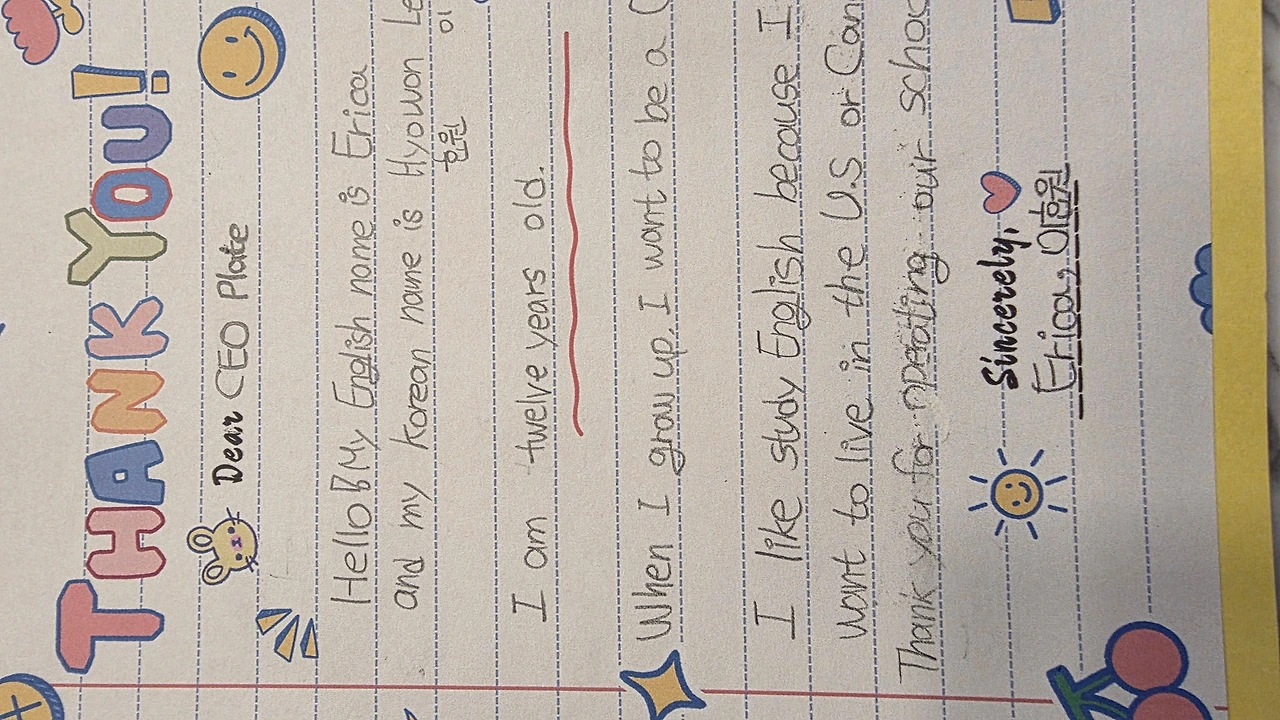 THANK YOU!
Dear CEO Plate
Hello! My English name is Erica
and my korean name is Hyowon Le
효원 이
I am twelve years old.
When I grow up, I want to be a
I like study English because I
want to live in the U.S or Can
Thank you for operating our schoo
Sincerely,
Erica, 이효원